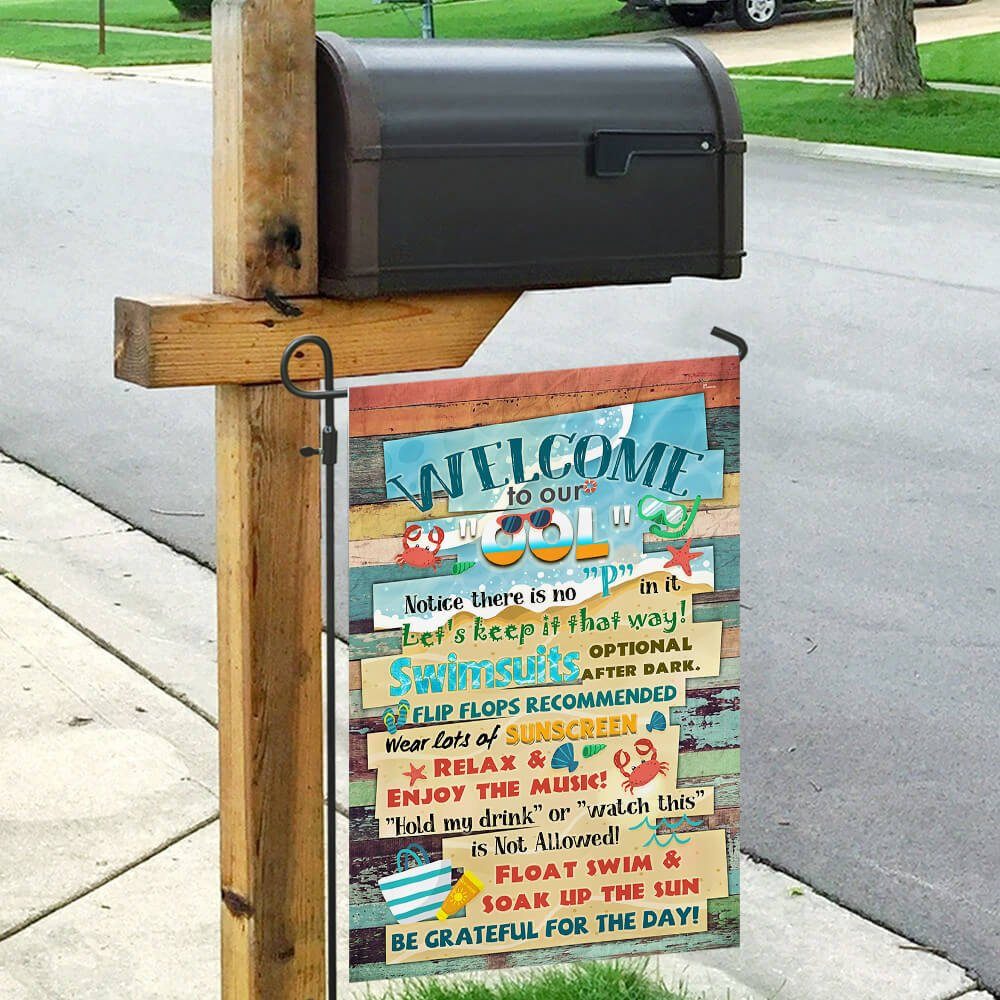 WELCOME
to our
"OOL"
Notice there is no "P" in it
Let's keep it that way!
Swimsuits OPTIONAL
AFTER DARK.
FLIP FLOPS RECOMMENDED
Wear lots of SUNSCREEN
RELAX &
ENJOY THE MUSIC!
"Hold my drink" or "watch this"
is Not Allowed!
FLOAT SWIM &
SOAK UP THE SUN
BE GRATEFUL FOR THE DAY!